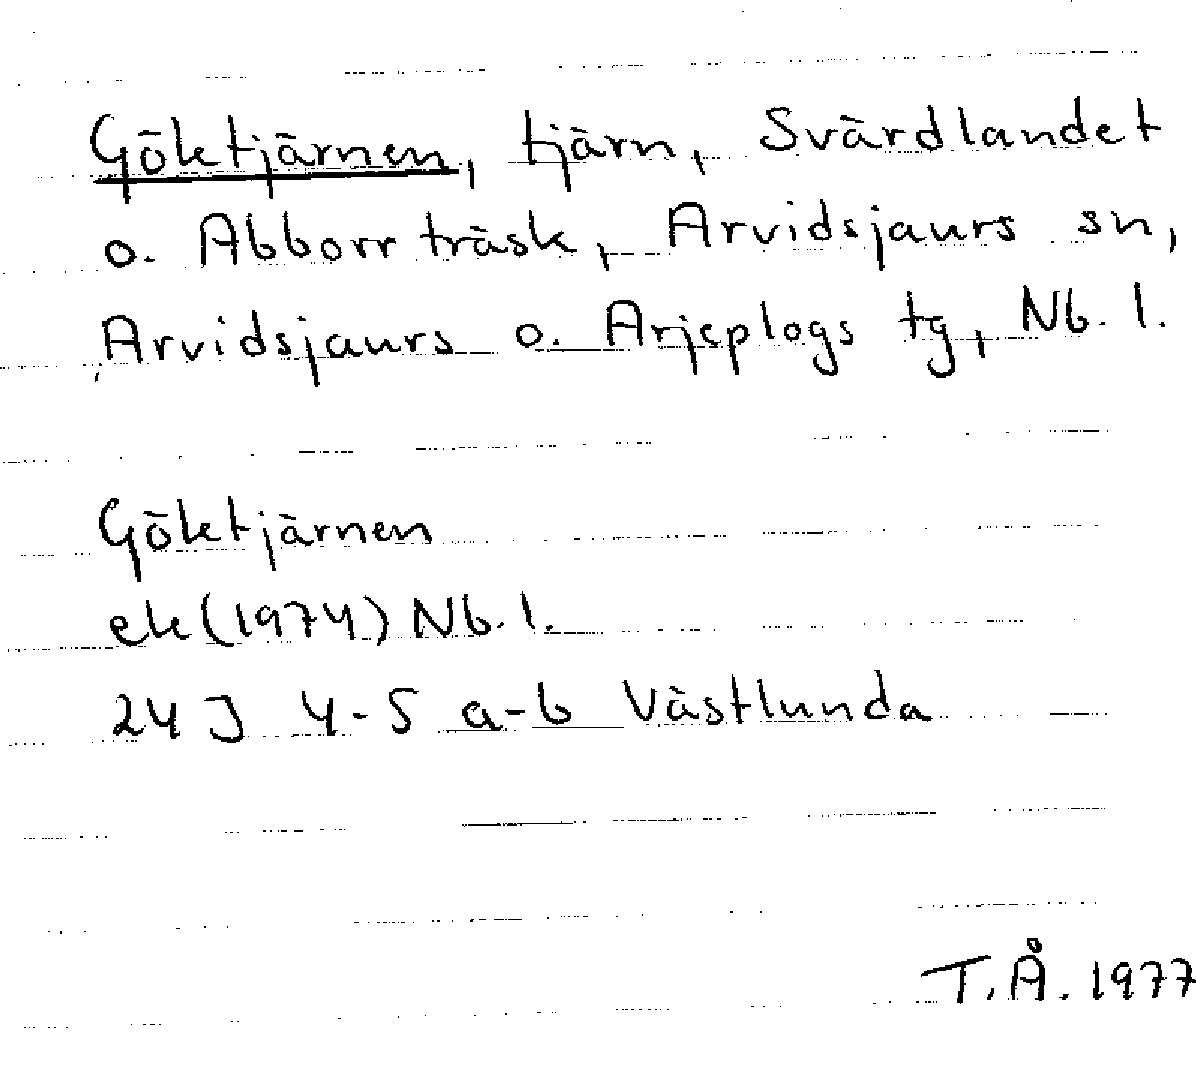 Göktjärnen, tjärn, Svärdlandet
o. Abborrträsk, Arvidsjaurs sn,
Arvidsjaurs o. Arjeplogs tg, Nb. l.
Göktjärnen
ek (1974) Nb. l.
24 J 4-5 a-b Västlunda
T.Å. 1977